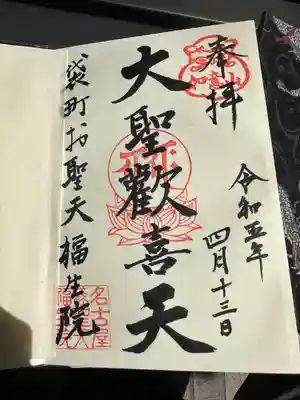 奉拝
令和五年
四月十三日
大聖歡喜天
袋町お聖天福生院
名古屋